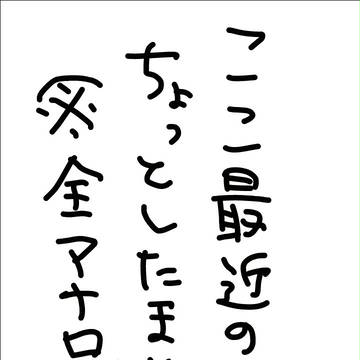 ここ最近の
ちょっとしたま
全マナロ